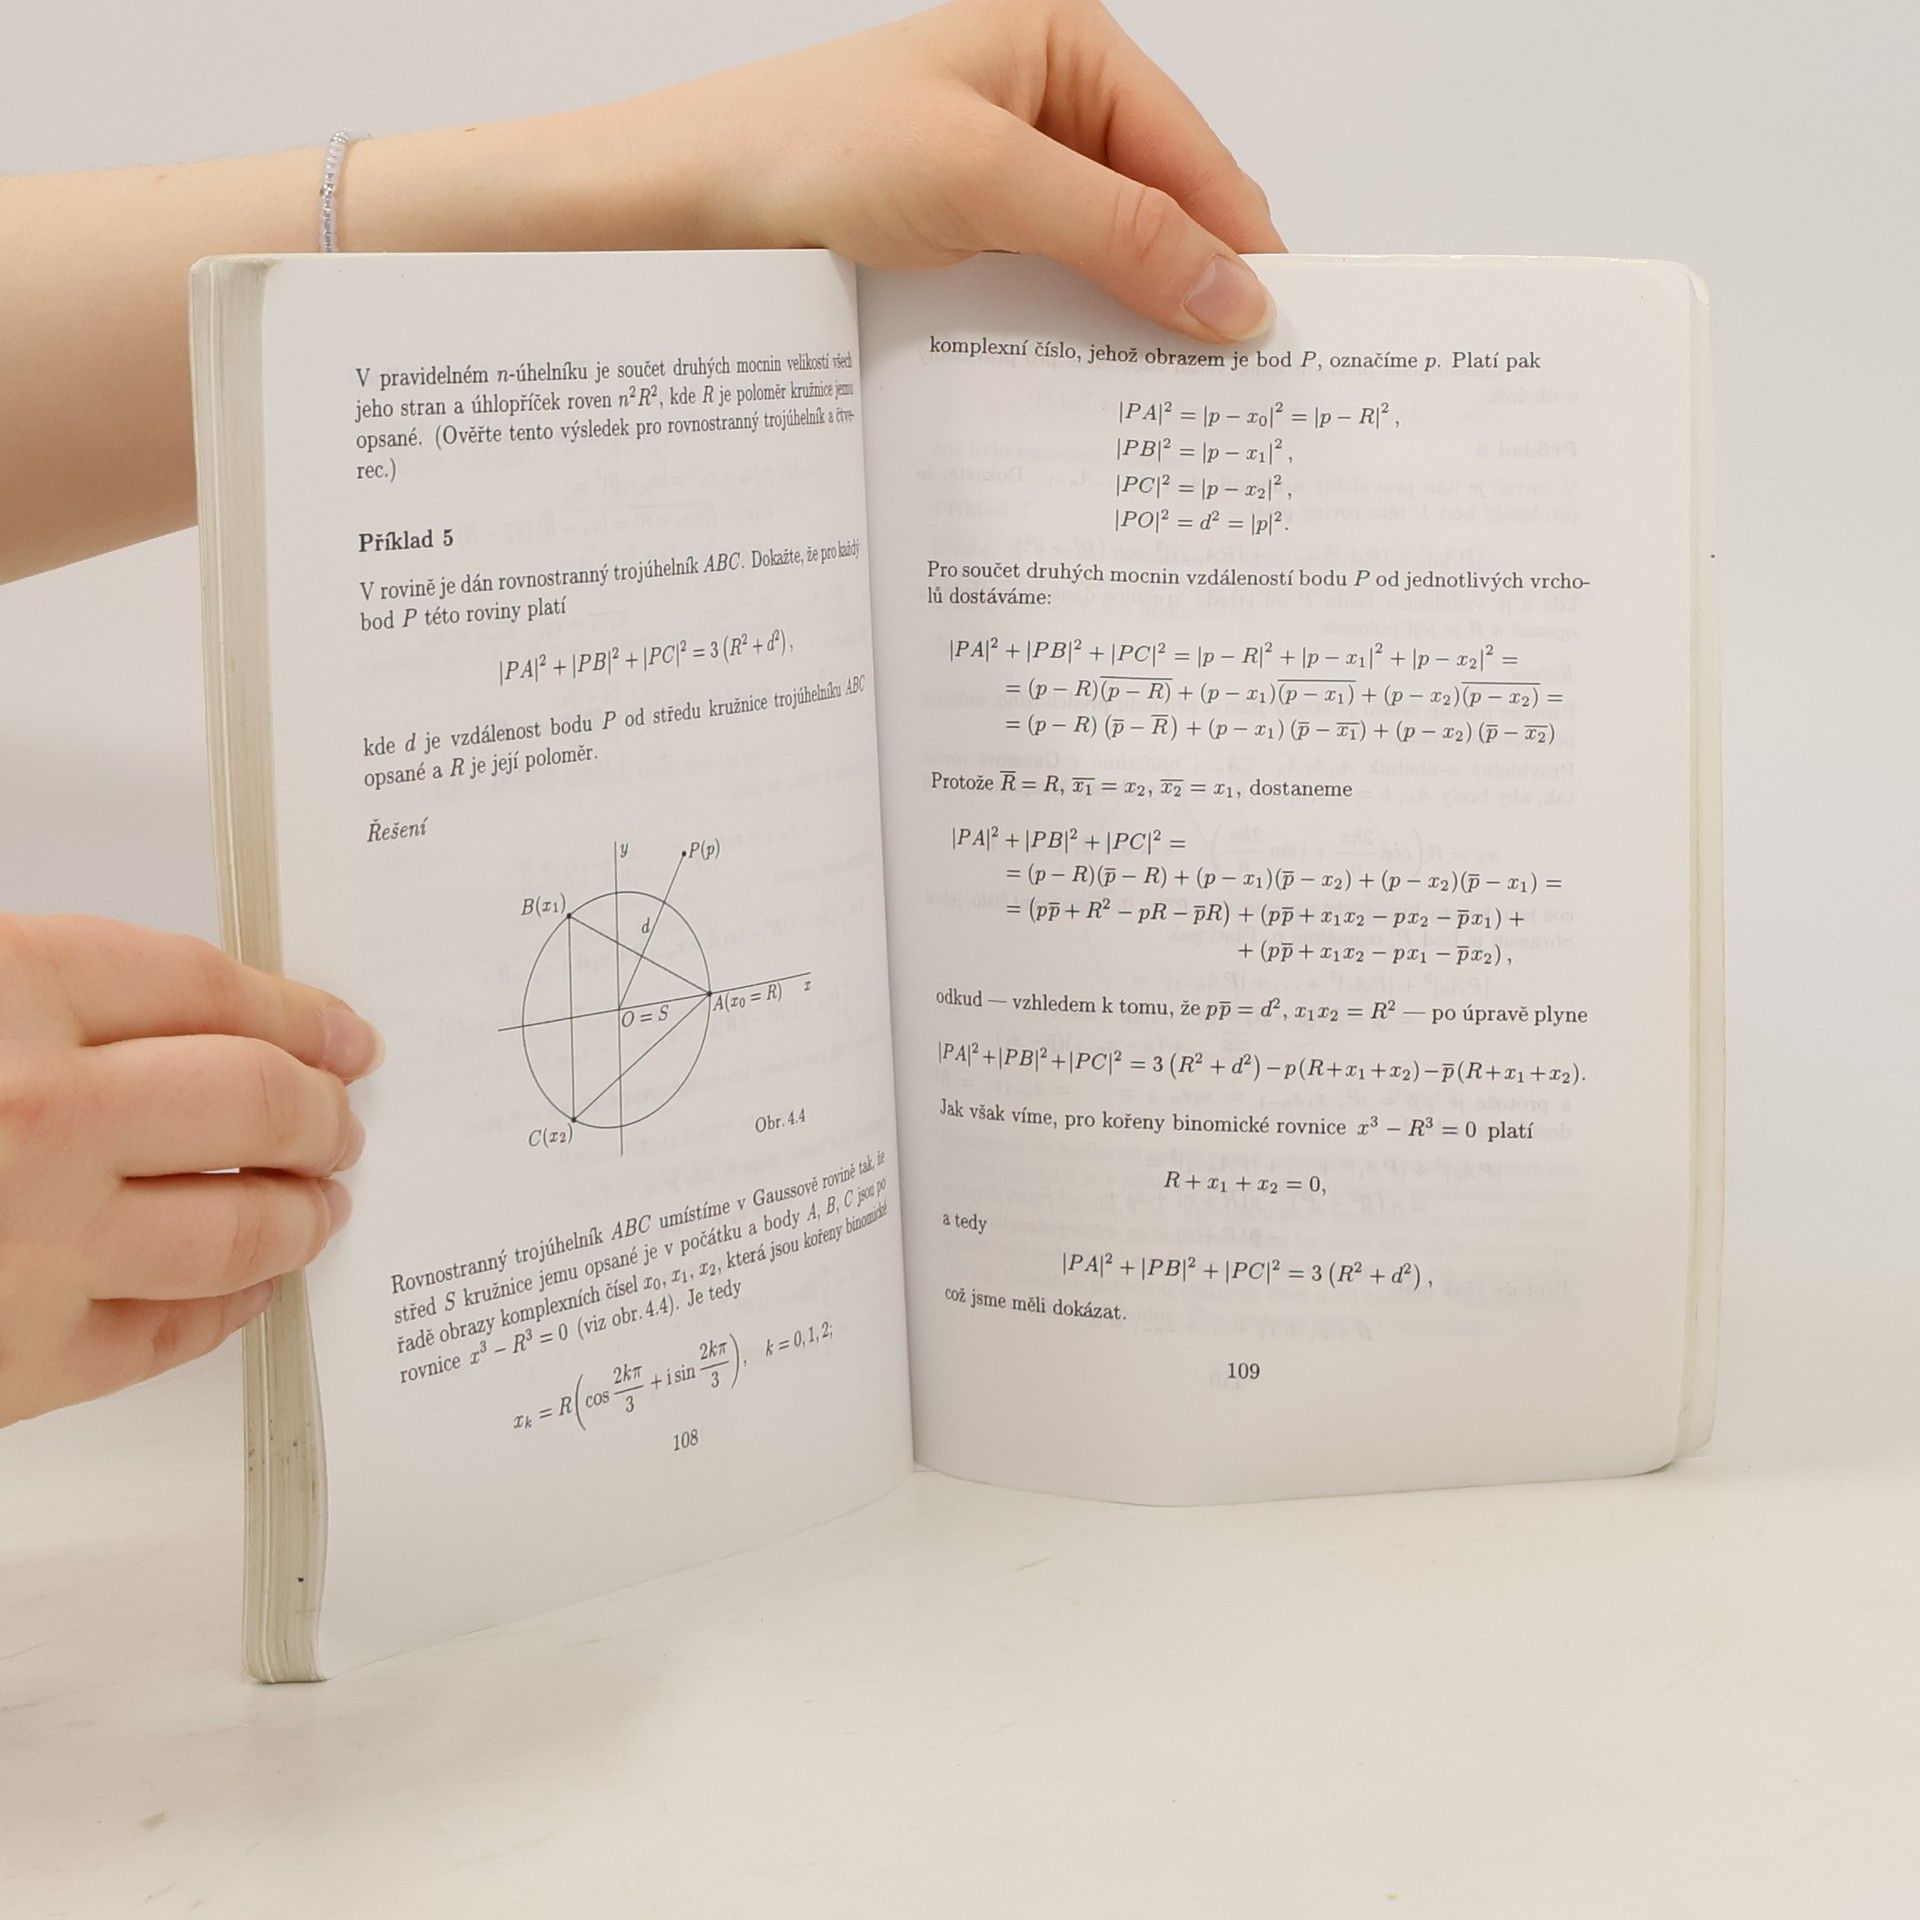 V pravidelném n-úhelníku je součet druhých mocnin velikostí všech
jeho stran a úhlopříček roven n²R², kde R je poloměr kružnice jemu
opsané. (Ověřte tento výsledek pro rovnostranný trojúhelník a čtve-
rec.)
Příklad 5
V rovině je dán rovnostranný trojúhelník ABC. Dokažte, že pro každý
bod P této roviny platí
|PA|² + |PB|² + |PC|² = 3 (R² + d²),
kde d je vzdálenost bodu P od středu kružnice trojúhelníku ABC
opsané a R je její poloměr.
Řešení
y
P(p)
B(x₁)
d
A(x₀ = R)
x
O = S
C(x₂)
Obr. 4.4
Rovnostranný trojúhelník ABC umístíme v Gaussově rovině tak, že
střed S kružnice jemu opsané je v počátku a body A, B, C jsou po
řadě obrazy komplexních čísel x₀, x₁, x₂, která jsou kořeny binomické
rovnice x³ − R³ = 0 (viz obr. 4.4). Je tedy
xₖ = R(cos 2kπ/3 + i sin 2kπ/3), k = 0, 1, 2;
108
komplexní číslo, jehož obrazem je bod P, označíme p. Platí pak
|PA|² = |p − x₀|² = |p − R|²,
|PB|² = |p − x₁|²,
|PC|² = |p − x₂|²,
|PO|² = d² = |p|².
Pro součet druhých mocnin vzdáleností bodu P od jednotlivých vrcho-
lů dostáváme:
|PA|² + |PB|² + |PC|² = |p − R|² + |p − x₁|² + |p − x₂|² =
= (p − R)(p̅ ̅−̅ ̅R̅) + (p − x₁)(p̅ ̅−̅ ̅x̅₁̅) + (p − x₂)(p̅ ̅−̅ ̅x̅₂̅) =
= (p − R) (p̅ − R̅) + (p − x₁) (p̅ − x̅₁̅) + (p − x₂) (p̅ − x̅₂̅)
Protože R̅ = R, x̅₁̅ = x₂, x̅₂̅ = x₁, dostaneme
|PA|² + |PB|² + |PC|² =
= (p − R)(p̅ − R) + (p − x₁)(p̅ − x₂) + (p − x₂)(p̅ − x₁) =
= (pp̅ + R² − pR − p̅R) + (pp̅ + x₁x₂ − px₂ − p̅x₁) +
+ (pp̅ + x₁x₂ − px₁ − p̅x₂),
odkud — vzhledem k tomu, že pp̅ = d², x₁x₂ = R² — po úpravě plyne
|PA|²+|PB|²+|PC|² = 3 (R² + d²)−p(R+x₁+x₂)−p̅(R+x₁+x₂).
Jak však víme, pro kořeny binomické rovnice x³ − R³ = 0 platí
R + x₁ + x₂ = 0,
a tedy
|PA|² + |PB|² + |PC|² = 3 (R² + d²),
což jsme měli dokázat.
109